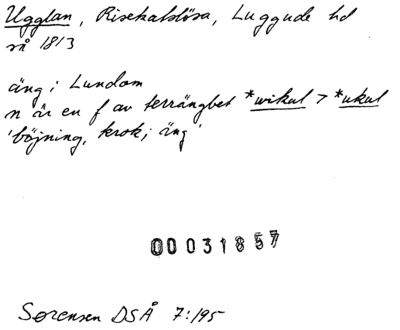 Ugglan, Risekatslösa, Luggude hd
rå 1813
äng i Lundom
n är en f av terrängbet *wikul > *ukul
'böjning, krok; äng'
00031857
Sørensen DSÅ 7:195